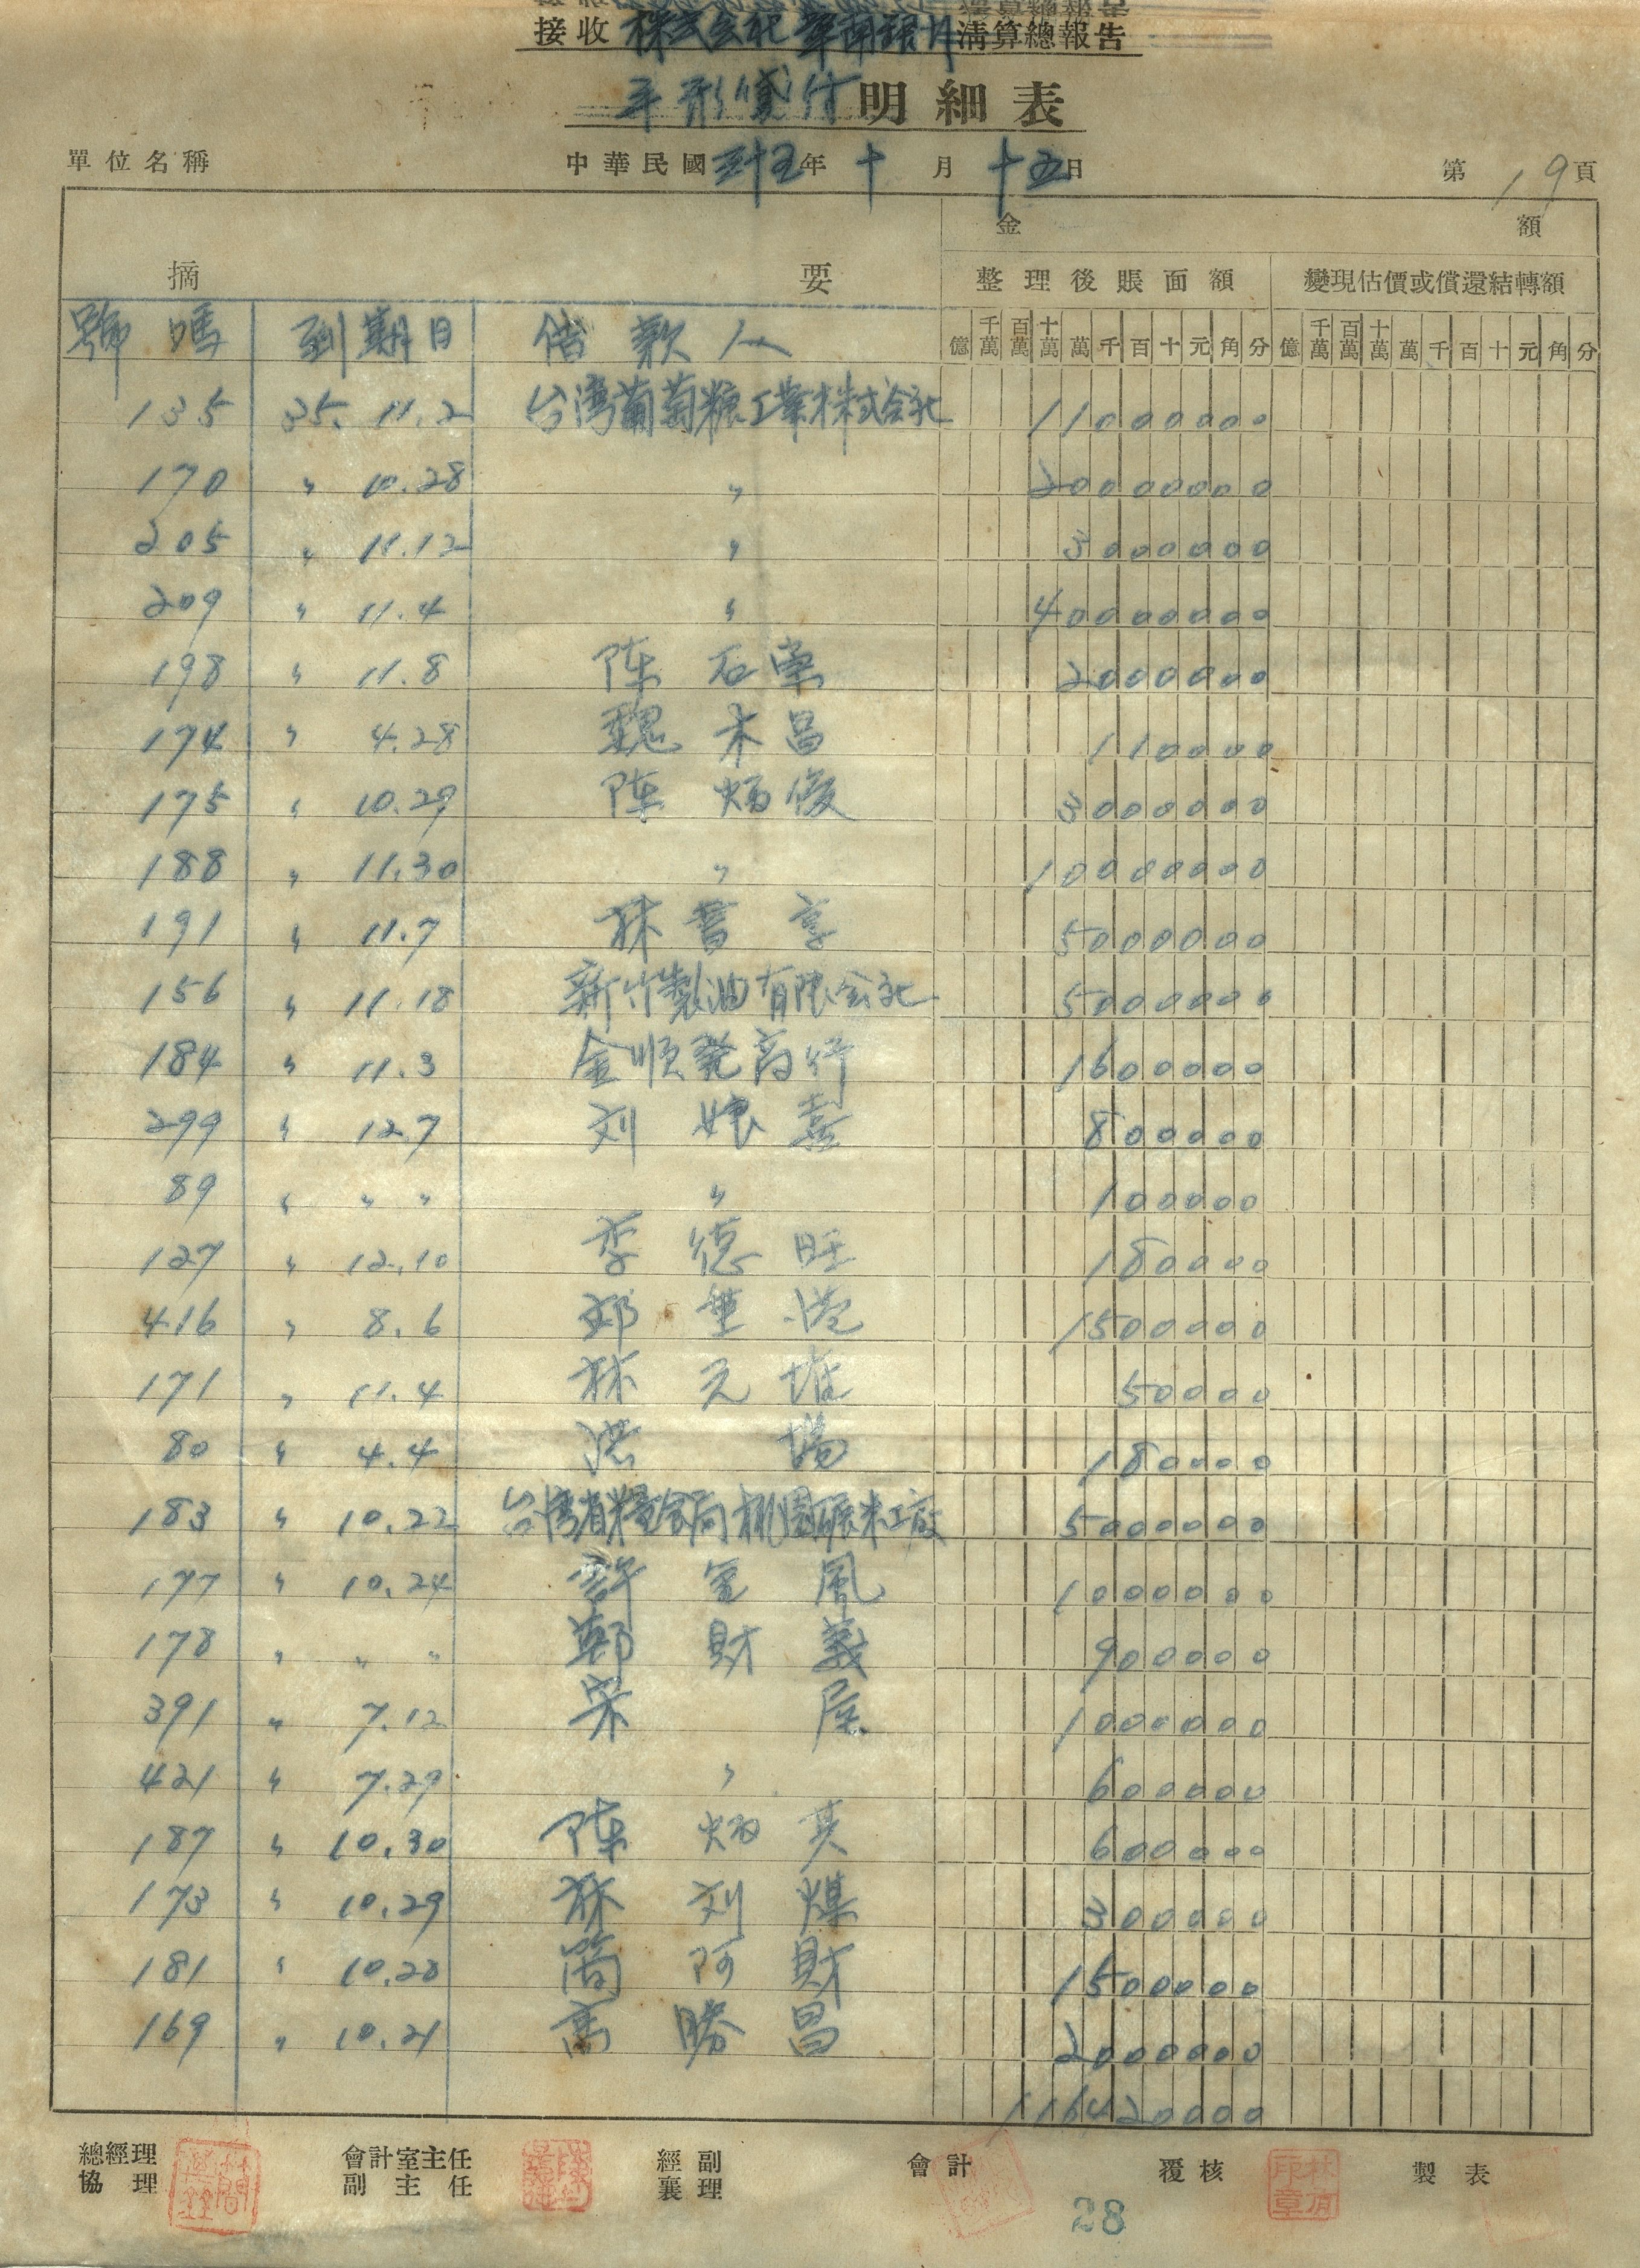 接收 株式会社 華南銀行 清算總報告
手形貸付 明細表
單位名稱 中華民國 三十五 年 十 月 十五 日 第 19 頁
金 額
摘 要 整理後賬面額 變現估價或償還結轉額
號碼 到期日 借款人 億 千萬 百萬 十萬 萬 千 百 十 元 角 分 億 千萬 百萬 十萬 萬 千 百 十 元 角 分
135 35. 11.2 台湾葡萄糖工業株式会社 11000000
170 〃 10.28 〃 20000000
205 〃 11.12 〃 3000000
209 〃 11.4 〃 40000000
198 〃 11.8 陈石 2000000
174 〃 4.28 魏木昌 110000
175 〃 10.29 陈炳俊 3000000
188 〃 11.30 〃 10000000
191 〃 11.7 林 5000000
156 〃 11.18 新竹製油有限会社 5000000
184 〃 11.3 金順発商行 1600000
299 〃 12.7 刘娘 800000
89 〃 〃 〃 〃 100000
127 〃 12.10 李德旺 180000
416 〃 8.6 邱垂 1500000
171 〃 11.4 林元堆 50000
80 〃 4.4 180000
183 〃 10.22 台湾省糧食局桃園碾米工廠 5000000
177 〃 10.24 許金鳳 1000000
178 〃 〃 〃 鄭財義 900000
391 〃 7.12 宋屋 1000000
421 〃 7.29 〃 600000
187 〃 10.30 陈炳 600000
173 〃 10.29 林刘煤 300000
181 〃 10.28 簡阿財 1500000
169 〃 10.21 高勝昌 2000000
116420000
總經理 會計室主任 經副 會計 覆核 製表
協理 副主任 襄理
28